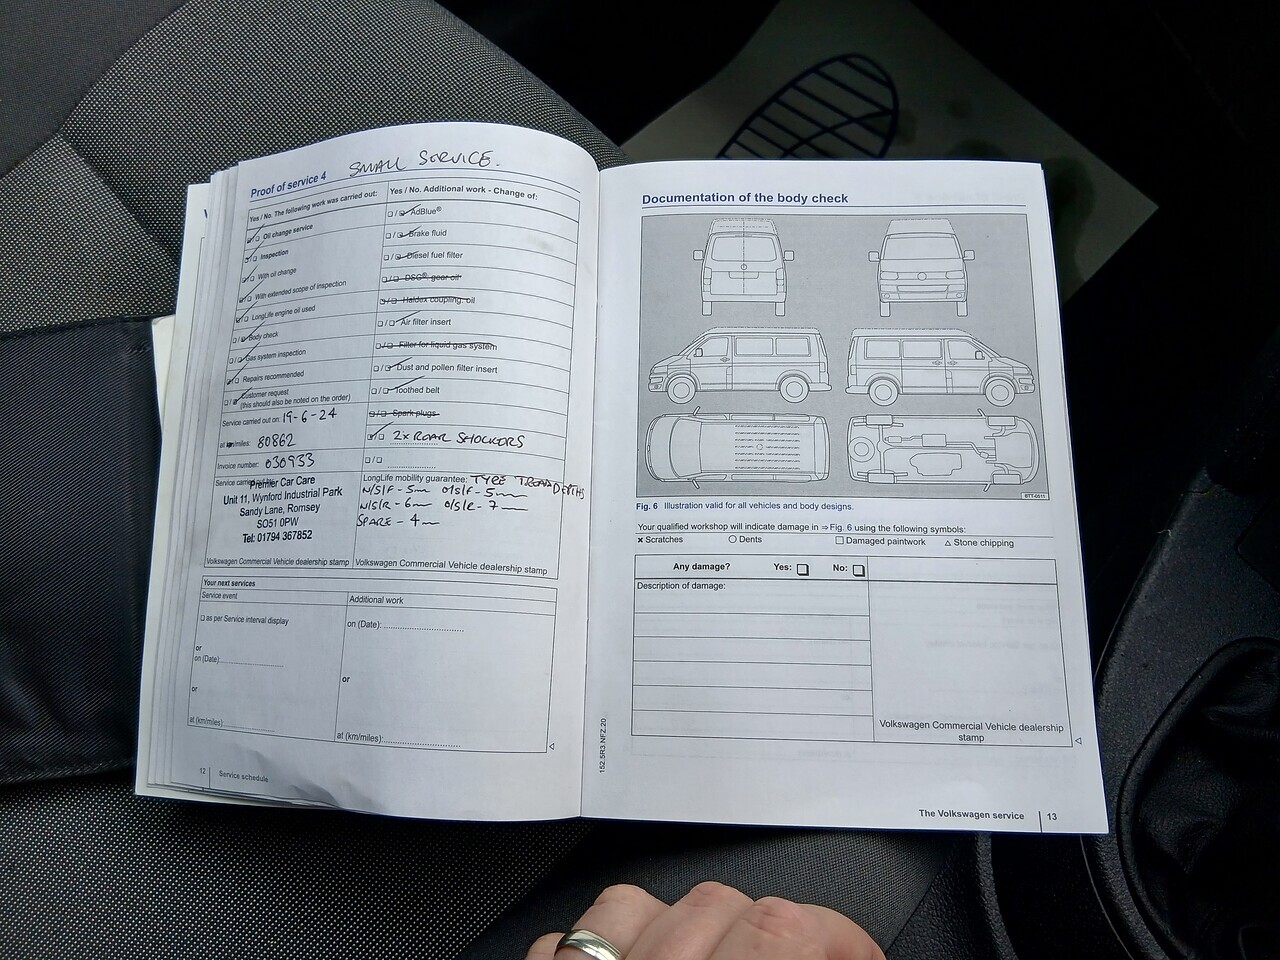 Proof of service 4 SMALL SERVICE.
Yes / No. The following work was carried out:
Oil change service
Inspection
With oil change
With extended scope of inspection
LongLife engine oil used
Body check
Gas system inspection
Repairs recommended
Customer request
(this should also be noted on the order)
Service carried out on: 19-6-24
at km/miles: 80862
Invoice number: 030933
Service
Premier Car Care
Unit 11, Wynford Industrial Park
Sandy Lane, Romsey
SO51 0PW
Tel: 01794 367852
Volkswagen Commercial Vehicle dealership stamp
Yes / No. Additional work - Change of:
AdBlue®
Brake fluid
Diesel fuel filter
DSG®. gear oil
Haldex coupling. oil
Air filter insert
Filter for liquid gas system
Dust and pollen filter insert
Toothed belt
Spark plugs
2x ROAR SHOCKERS
LongLife mobility guarantee: TYRE TREAD DEPTHS
N/S/F - 5mm O/S/F - 5mm
N/S/R - 6mm O/S/R - 7mm
SPARE - 4mm
Volkswagen Commercial Vehicle dealership stamp
Your next services
Service event
as per Service interval display
or
on (Date):
or
at (km/miles)
Additional work
on (Date):
or
at (km/miles):
12 Service schedule
Documentation of the body check
BTT-0511
Fig. 6 Illustration valid for all vehicles and body designs.
Your qualified workshop will indicate damage in ⇒ Fig. 6 using the following symbols:
× Scratches ○ Dents □ Damaged paintwork △ Stone chipping
Any damage? Yes: No:
Description of damage:
Volkswagen Commercial Vehicle dealership
stamp
152.5R3.NFZ.20
The Volkswagen service 13